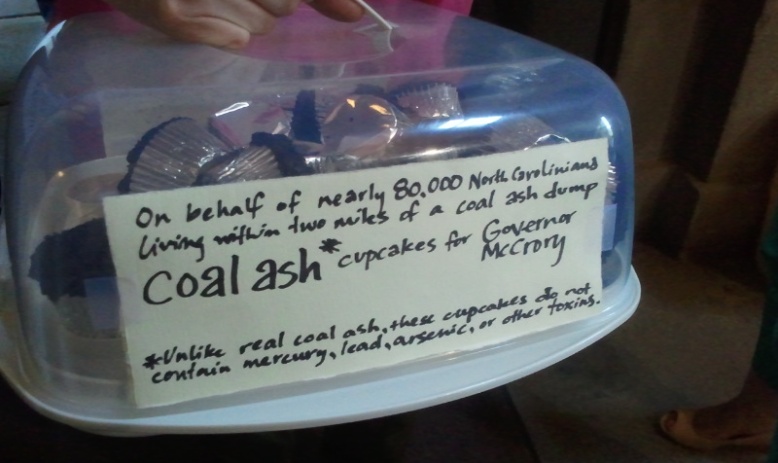 On behalf of nearly 80,000 North Carolinians
living within two miles of a coal ash dump
Coal ash* cupcakes for Governor
McCrory
*Unlike real coal ash, these cupcakes do not
contain mercury, lead, arsenic, or other toxins.